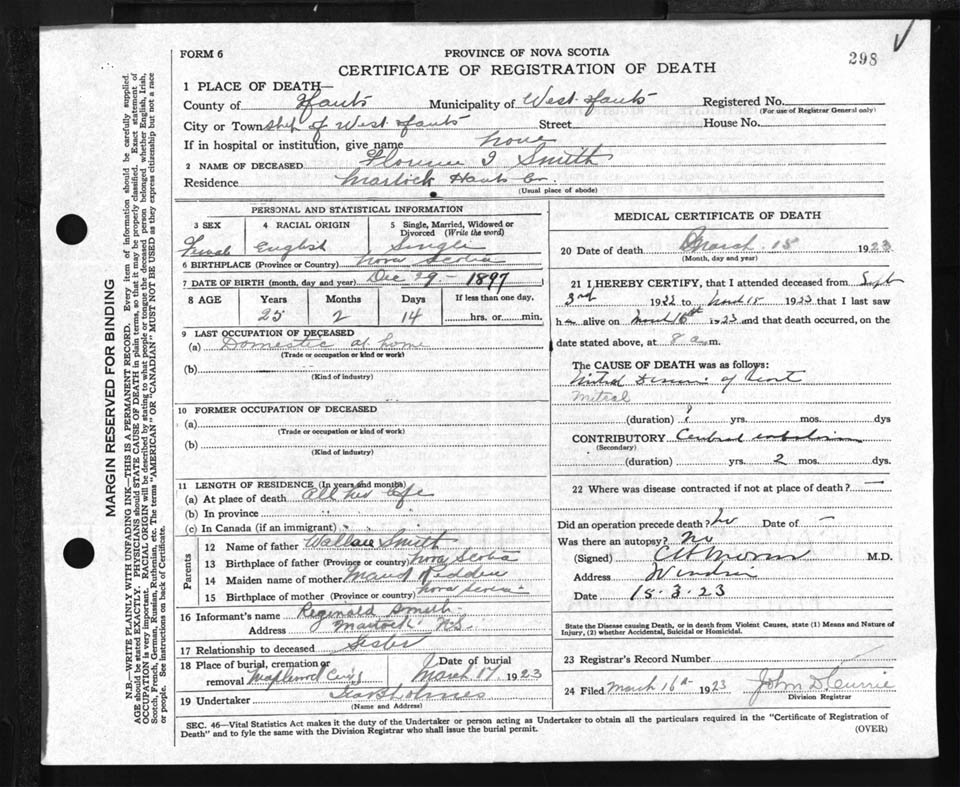 298
FORM 6
PROVINCE OF NOVA SCOTIA
CERTIFICATE OF REGISTRATION OF DEATH
1 PLACE OF DEATH—
County of Hants Municipality of West Hants Registered No.
(For use of Registrar General only)
City or Township of West Hants Street House No.
If in hospital or institution, give name none
2 NAME OF DECEASED Florence I Smith
Residence Martock Hants Co.
(Usual place of abode)
PERSONAL AND STATISTICAL INFORMATION
3 SEX 4 RACIAL ORIGIN 5 Single, Married, Widowed or Divorced (Write the word)
Female English Single
6 BIRTHPLACE (Province or Country) Nova Scotia
7 DATE OF BIRTH (month, day and year) Dec 29 - 1897
8 AGE Years Months Days If less than one day,
25 2 14 hrs. or min.
9 LAST OCCUPATION OF DECEASED
(a) Domestic at home
(Trade or occupation or kind of work)
(b)
(Kind of industry)
10 FORMER OCCUPATION OF DECEASED
(a)
(Trade or occupation or kind of work)
(b)
(Kind of industry)
11 LENGTH OF RESIDENCE (In years and months)
(a) At place of death All her life
(b) In province
(c) In Canada (if an immigrant)
Parents
12 Name of father Wallace Smith
13 Birthplace of father (Province or country) Nova Scotia
14 Maiden name of mother Maud Redden
15 Birthplace of mother (Province or country) Nova Scotia
16 Informant's name Reginald Smith
Address Martock N.S.
17 Relationship to deceased Sister
18 Place of burial, cremation or removal Maplewood Cem Date of burial March 17 1923
19 Undertaker
(Name and Address)
MEDICAL CERTIFICATE OF DEATH
20 Date of death March 15 1923
(Month, day and year)
21 I HEREBY CERTIFY, that I attended deceased from Sept
3rd 1922 to March 15 1923 that I last saw
h alive on March 16th 1923 and that death occurred, on the
date stated above, at 8 a.m.
The CAUSE OF DEATH was as follows:
Mitral Disease of heart
Mitral
(duration) ? yrs. mos. dys
CONTRIBUTORY Cerebral embolism
(Secondary)
(duration) yrs. 2 mos. dys.
22 Where was disease contracted if not at place of death? —
Did an operation precede death? No Date of —
Was there an autopsy? No
(Signed) M.D.
Address Windsor
Date 15.3.23
State the Disease causing Death, or in death from Violent Causes, state (1) Means and Nature of Injury, (2) whether Accidental, Suicidal or Homicidal.
23 Registrar's Record Number
24 Filed March 16th 1923 John D Currie
Division Registrar
SEC. 46—Vital Statistics Act makes it the duty of the Undertaker or person acting as Undertaker to obtain all the particulars required in the "Certificate of Registration of
Death" and to fyle the same with the Division Registrar who shall issue the burial permit.
(OVER)
MARGIN RESERVED FOR BINDING
N.B.—WRITE PLAINLY WITH UNFADING INK—THIS IS A PERMANENT RECORD. Every item of information should be carefully supplied.
AGE should be stated EXACTLY. PHYSICIANS should STATE CAUSE OF DEATH in plain terms, so that it may be properly classified. Exact statement of
OCCUPATION is very important. RACIAL ORIGIN will be described by stating to what people or tongue the deceased person belonged whether English, Irish,
Scotch, French, German, Russian, Ruthenian, etc. The terms "AMERICAN" OR "CANADIAN" MUST NOT BE USED as they express citizenship but not a race
or people. See instructions on back of Certificate.